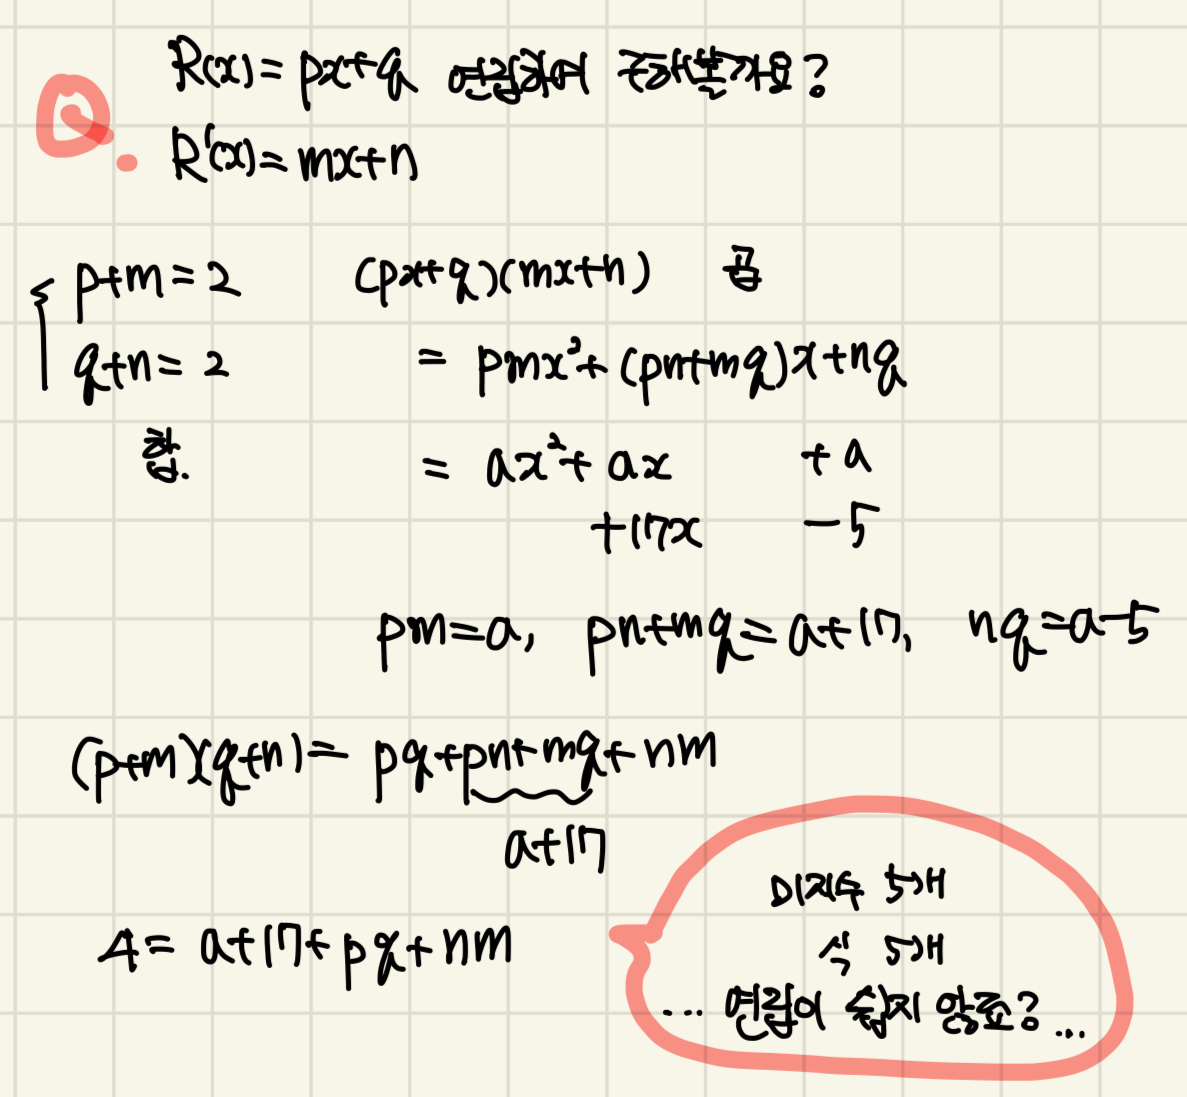 R(x) = px+q 연립하여 구해볼까요?
Q.
R'(x) = mx+n
p+m = 2
q+n = 2
합.
(px+q)(mx+n) 곱
= pmx²+(pn+mq)x+nq
= ax²+ax +a
+17x -5
pm=a, pn+mq=a+17, nq=a-5
(p+m)(q+n) = pq+pn+mq+nm
a+17
4= a+17+pq+nm
미지수 5개
식 5개
... 연립이 쉽지 않죠? ...